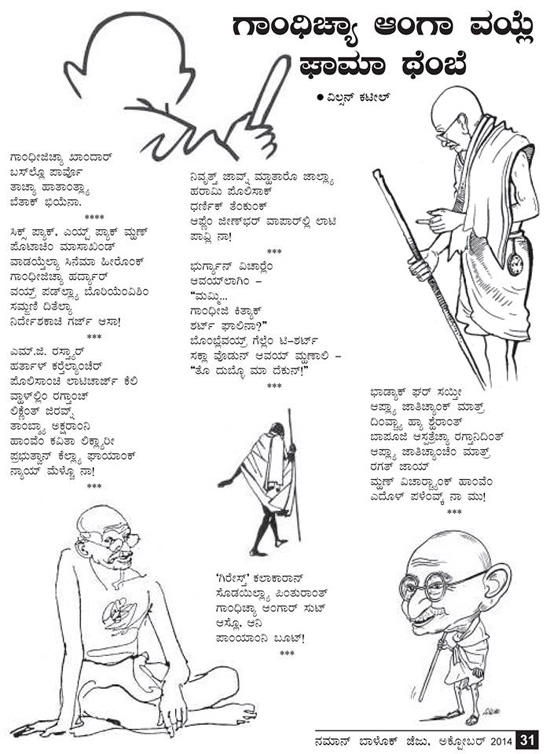 ಗಾಂಧಿಚ್ಯಾ ಆಂಗಾ ವಯ್ಲೆ
ಘಾಮಾ ಥೆಂಬೆ
● ವಿಲ್ಸನ್ ಕಟೀಲ್
ಗಾಂಧೀಜಿಚ್ಯಾ ಖಾಂದಾರ್
ಬಸ್‌ಲ್ಲೊ ಪಾರ್ವೊ
ತಾಚ್ಯಾ ಹಾತಾಂತ್ಲ್ಯಾ
ಬೆತಾಕ್ ಭಿಯೆನಾ.
****
ಸಿಕ್ಸ್ ಪ್ಯಾಕ್, ಎಯ್ಟ್ ಪ್ಯಾಕ್ ಮ್ಹಣ್
ಪೊಟಾಚಿಂ ಮಾಸಾಖಂಡ್
ವಾಡಯ್ತೆಲ್ಯಾ ಸಿನೆಮಾ ಹೀರೊಂಕ್
ಗಾಂಧೀಜಿಚ್ಯಾ ಹರ್ದ್ಯಾರ್
ವಯ್ರ್ ಪಡ್‌ಲ್ಲ್ಯಾ ಬೊರಿಯೆಂವಿಶಿಂ
ಸಮ್ಜಣಿ ದಿತೆಲ್ಯಾ
ನಿರ್ದೇಶಕಾಚಿ ಗರ್ಜ್ ಆಸಾ!
***
ಎಮ್.ಜಿ. ರಸ್ತ್ಯಾರ್
ಹರ್ತಾಳ್ ಕರ್ತೆಲ್ಯಾಂಚೆರ್
ಪೊಲಿಸಾಂಚಿ ಲಾಟಿಚಾರ್ಜ್ ಕೆಲಿ
ವ್ಹಾಳ್‌ಲ್ಲಿಂ ರಗ್ತಾಂಚ್
ಲಿಕ್ಣೆಂತ್ ಜಿರವ್ನ್
ತಾಂಬ್ಡ್ಯಾ ಅಕ್ಷರಾಂನಿ
ಹಾಂವೆಂ ಕವಿತಾ ಲಿಕ್ಲ್ಯಾರೀ
ಪ್ರಭುತ್ವಾನ್ ಕೆಲ್ಲ್ಯಾ ಘಾಯಾಂಕ್
ನ್ಯಾಯ್ ಮೆಳ್ಚೊ ನಾ!
***
ನಿವೃತ್ತ್ ಜಾವ್ನ್ ಮ್ಹಾತಾರೊ ಜಾಲ್ಲ್ಯಾ
ಹರಾಮಿ ಪೊಲಿಸಾಕ್
ಧರ್ಣಿಕ್ ತೆಂಕುಂಕ್
ಆಪ್ಣೆಂ ಜೀಣ್‌ಭರ್ ವಾಪಾರ್‌ಲ್ಲಿ ಲಾಟಿ
ಪಾವ್ಲಿ ನಾ!
***
ಭುರ್ಗ್ಯಾನ್ ವಿಚಾರ್‍ಲೆಂ
ಆವಯ್‌ಲಾಗಿಂ –
“ಮಮ್ಮಿ...
ಗಾಂಧೀಜಿ ಕಿತ್ಯಾಕ್
ಶರ್ಟ್ ಘಾಲಿನಾ?”
ಬೊಂಬ್ಲೆವಯ್ರ್ ಗೆಲ್ಲೆಂ ಟಿ-ಶರ್ಟ್
ಸಕ್ಲಾ ವೊಡುನ್ ಆವಯ್ ಮ್ಹಣಾಲಿ –
“ತೊ ದುಬ್ಳೊ ಮಾ ದೆಕುನ್!”
***
ಭಾಡ್ಯಾಕ್ ಘರ್ ಸಯ್ತೀ
ಆಪ್ಲ್ಯಾ ಜಾತಿಚ್ಯಾಂಕ್ ಮಾತ್ರ್
ದಿಂವ್ಚ್ಯಾ ಹ್ಯಾ ಶ್ಹೆರಾಂತ್
ಬಾಪೂಜಿ ಆಸ್ಪತ್ರೆಚ್ಯಾ ರಗ್ತಾನಿದಿಂತ್
ಆಪ್ಲ್ಯಾ ಜಾತಿಚ್ಯಾಂಚೆಂ ಮಾತ್ರ್
ರಗತ್ ಜಾಯ್
ಮ್ಹಣ್ ವಿಚಾರ್‍ಚ್ಯಾಂಕ್ ಹಾಂವೆಂ
ಎದೊಳ್ ಪಳೆಂವ್ಕ್ ನಾ ಮು!
***
‘ಗಿರೇಸ್ತ್’ ಕಲಾಕಾರಾನ್
ಸೊಡಯಿಲ್ಲ್ಯಾ ಪಿಂತುರಾಂತ್
ಗಾಂಧಿಚ್ಯಾ ಆಂಗಾರ್ ಸುಟ್
ಆಸ್ಲೊ, ಆನಿ
ಪಾಂಯಾಂನಿ ಬೂಟ್!
***
ನಮಾನ್ ಬಾಳೊಕ್ ಜೆಜು, ಅಕ್ಟೋಬರ್ 2014 31